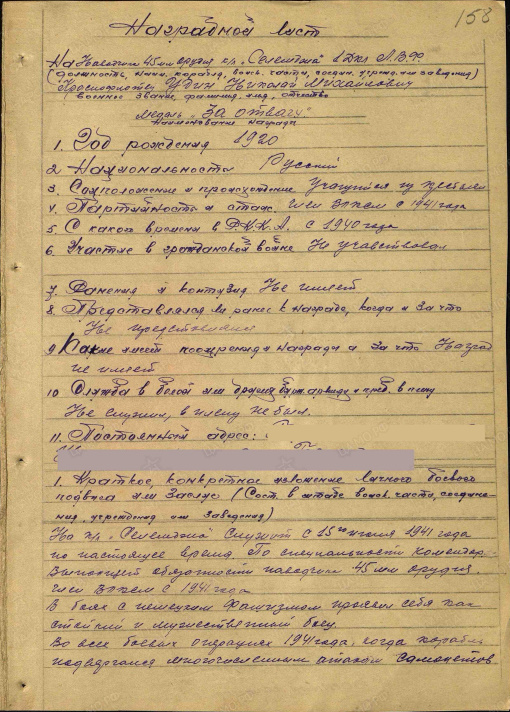 158
Наградной лист
На Наводчика 45мм орудия к/л "Селемджа" 1 Дкл Л.В.Ф
(должность, наим. корабля, воинск. части, соедин. учрежд. или заведения)
Краснофлотец Николай Михайлович
(воинское звание, фамилия, имя, отчество
Медаль "За отвагу"
Наименование награда
1. Год рождения 1920
2 Национальность Русский
3. Соцположение и происхождение Учащийся из крестьян
4. Партийность и стаж. Член ВЛКСМ с 1941 года
5 С какого времени в Р.К.К.А. с 1940 года
6. Участие в гражданской войне Не участвовал
7. Ранения и контузия Не имеет
8. Представлялся ли ранее к награде, когда и за что
Не представлялся
9 Какие имеет поощрения и награды и за что Наград
не имеет
10 Служба в белой или других бурж. армиях и преб. в плену
Не служил, в плену не был.
11. Постоянный адрес:
1. Краткое, конкретное изложение личного боевого
подвига или Заслуг (Сост. в штабе воинск. части, соедине-
ния, учреждения или заведения)
На к/л "Селемджа" служит с 15го июля 1941 года
по настоящее время. По специальности комендор.
Выполняет обязанности наводчика 45 мм орудия.
член ВЛКСМ с 1941 года
В боях с немецким фашизмом проявил себя как
стойкий и мужественный боец.
Во всех боевых операциях 1941 года, когда корабль
подвергался многочисленным атакам самолетов